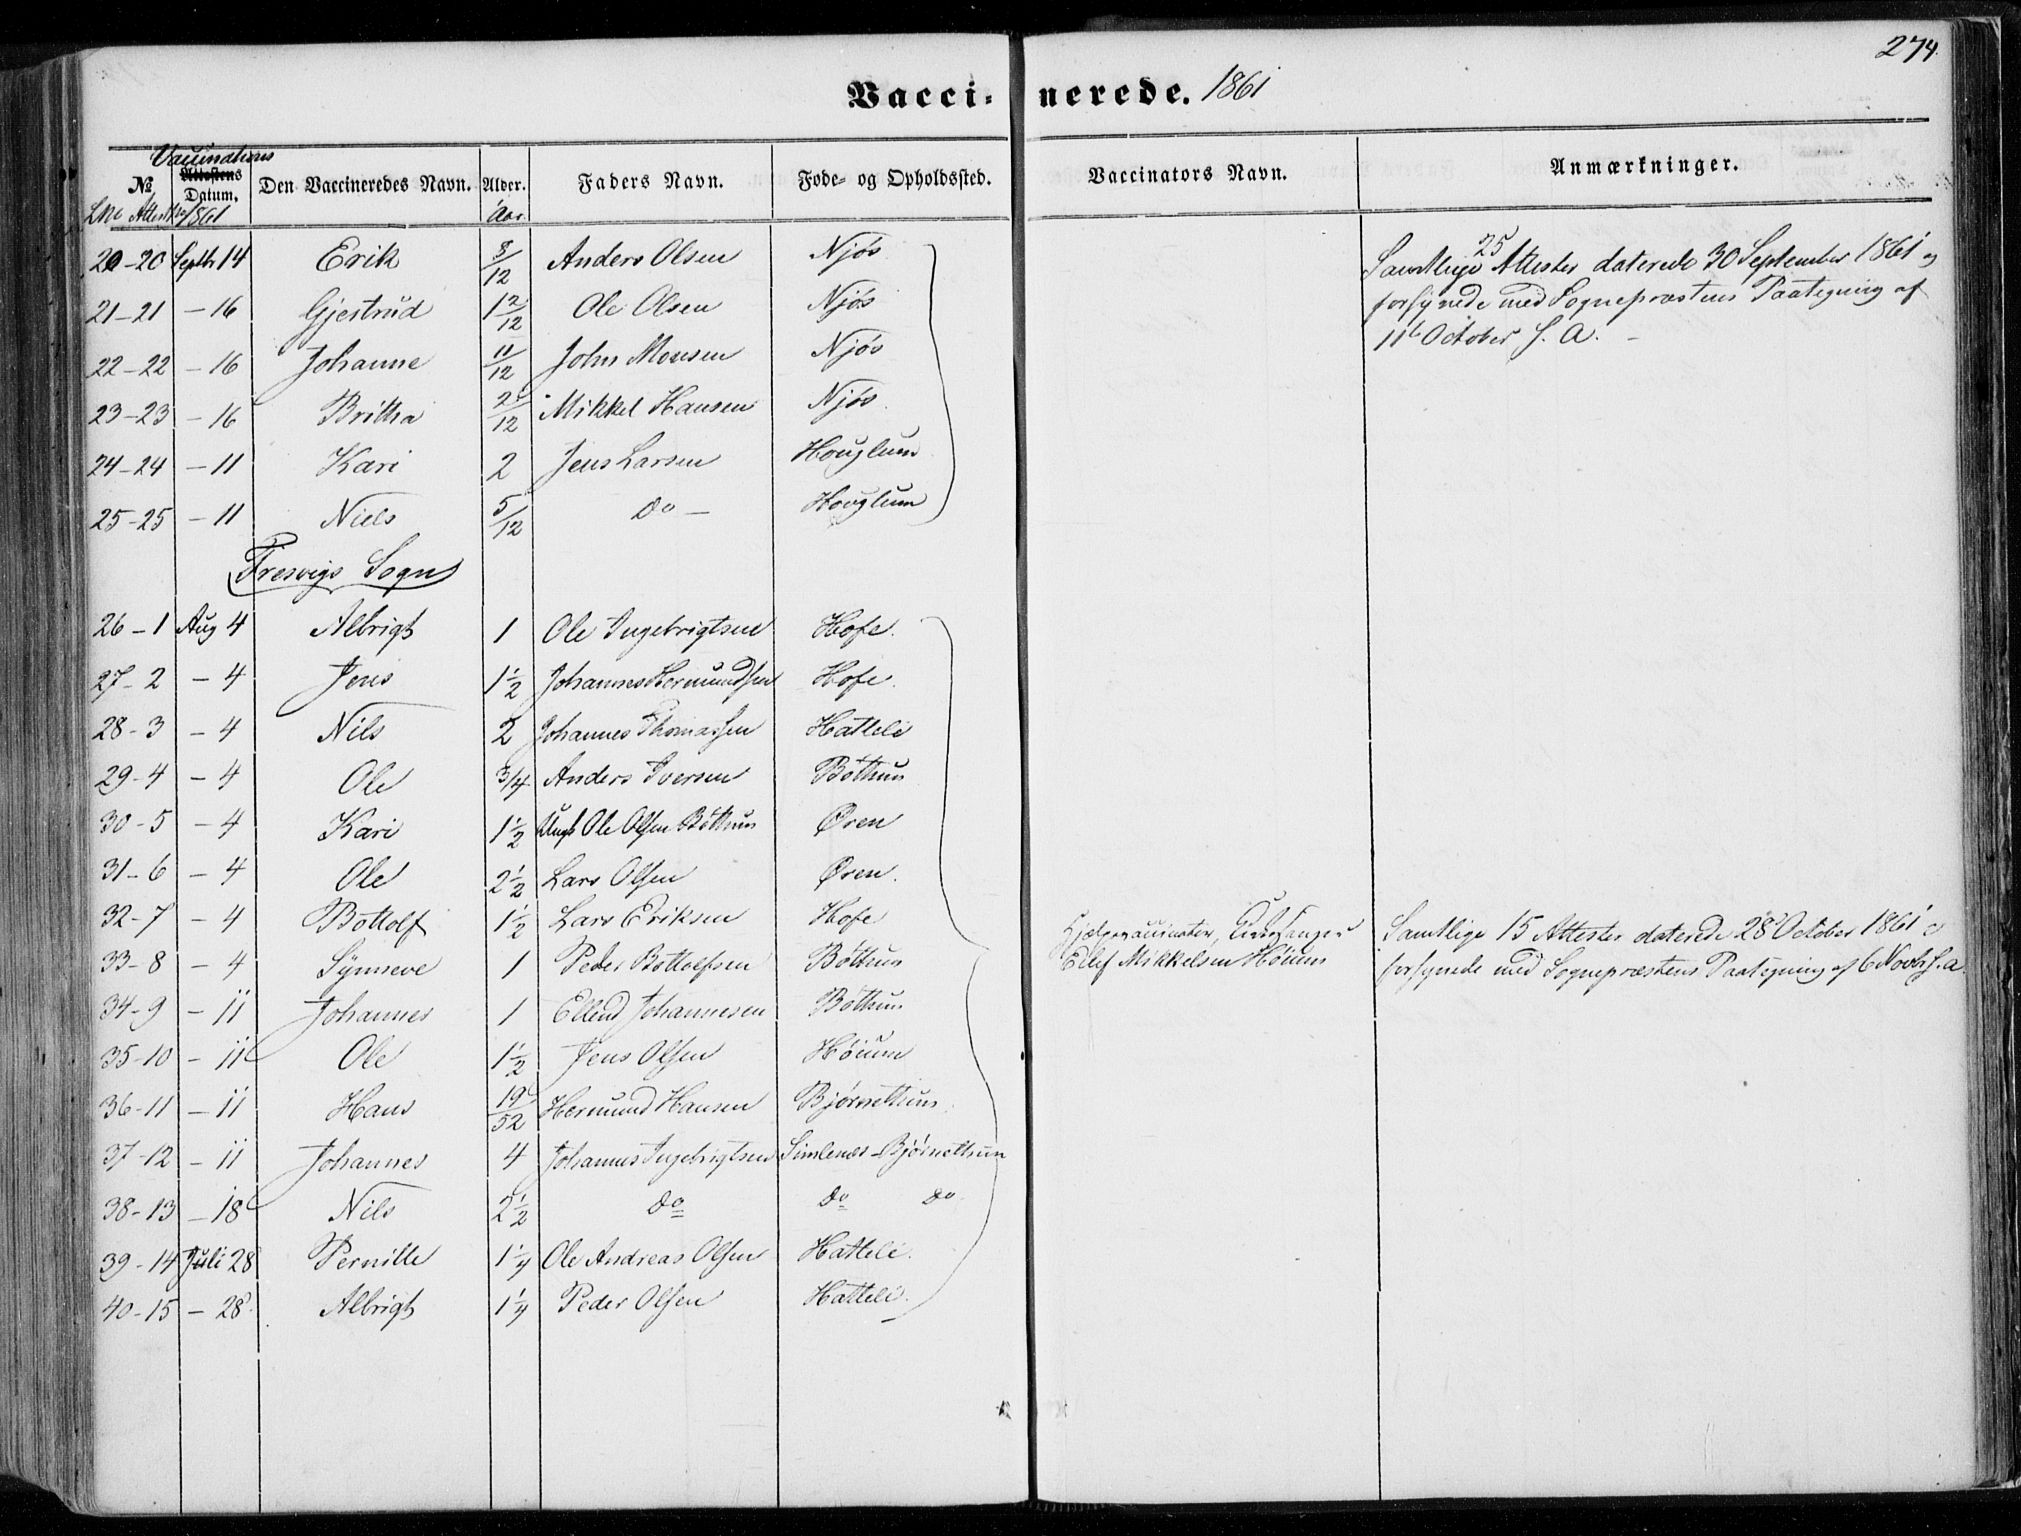 274.
Vacci- nerede. 1861
Vaccinations
No Attestens Datum. Den Vaccineredes Navn. Alder. Faders Navn. Føde- og Opholdssted. Vaccinators Navn. Anmærkninger.
LNo AttestNo 1861 Aar
20-20 Septbr 14 Erik 8/12 Anders Olsen Njøs
21-21 - 16 Gjertrud 1 2/12 Ole Olsen Njøs
22-22 - 16 Johanne 11/12 John Monsen Njøs
23-23 - 16 Brittha Mikkel Hansen Njøs
24-24 - 11 Kari 2 Jens Larsen Houglum
25-25 - 11 Niels 5/12 do - Houglum
25
Samtlige Attester daterede 30 September 1861 og
forsynede med Sognepræstens Paategning af
11te October s. A. -
Fresvigs Sogn
26-1 Aug 4 Albrigt 1 Ole Ingebrigtsen Hofe.
27-2 - 4 Jens 1 1/2 Johannes Hermundsen Hofe.
28-3 - 4 Nils 2 Johannes Thomassen Hatteli
29-4 - 4 Ole 3/4 Anders Iversen Bøthun
30-5 - 4 Kari 1 1/2 Ungk Ole Olsen Bøthun Øren
31-6 - 4 Ole 2 1/2 Lars Olsen Øren.
32-7 - 4 Bottolf 1 1/2 Lars Eriksen Hofe
33-8 - 4 Synneve 1 Peder Bottolfsen Bøthun
34-9 - 11 Johannes 1 Ellend Johannesen Bøthun
35-10 - 11 Ole 1 1/2 Jens Olsen Høium
36-11 - 11 Hans 19/52 Hermund Hansen Bjørnethun
37-12 - 11 Johannes 4 Johannes Ingebrigtsen Simlenæs - Bjørnethun
38-13 - 18 Nils 2 1/2 do do do
39-14 Juli 28 Pernille 1 1/4 Ole Andreas Olsen Hatteli.
40-15 - 28 Albrigt 1 1/4 Peder Olsen Hatteli.
Hjælpevaccinateur, Kirkesanger
Elef Mikkelsen Høium
Samtlige 15 Attester daterede 28 October 1861 og
forsynede med Sognepræstens Paategning af 6 Novbr s. a.